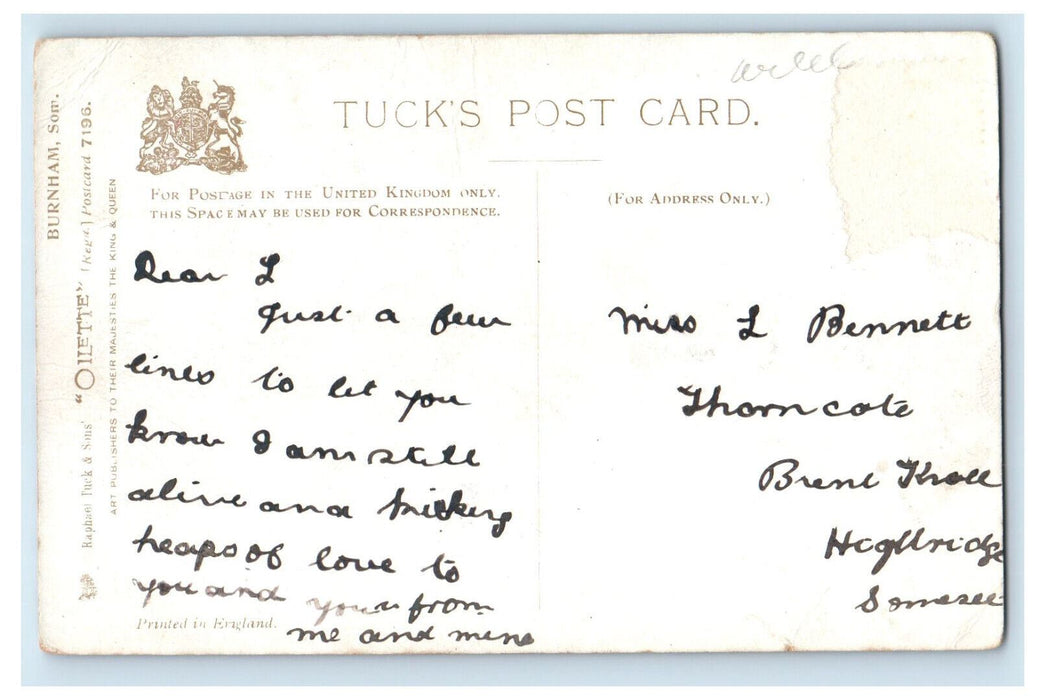 BURNHAM, Som.
Raphael Tuck & Sons' "OILETTE" [Regd.] Postcard 7196.
ART PUBLISHERS TO THEIR MAJESTIES THE KING & QUEEN
TUCK'S POST CARD.
FOR POSTAGE IN THE UNITED KINGDOM ONLY.
THIS SPACE MAY BE USED FOR CORRESPONDENCE.
(FOR ADDRESS ONLY.)
Dear L
Just a few
lines to let you
know I am still
alive and kicking
heaps of love to
you and your from
me and mine
Printed in England.
Miss L Bennett
Thorncote
Brent Knoll
Highbridge
Somerset